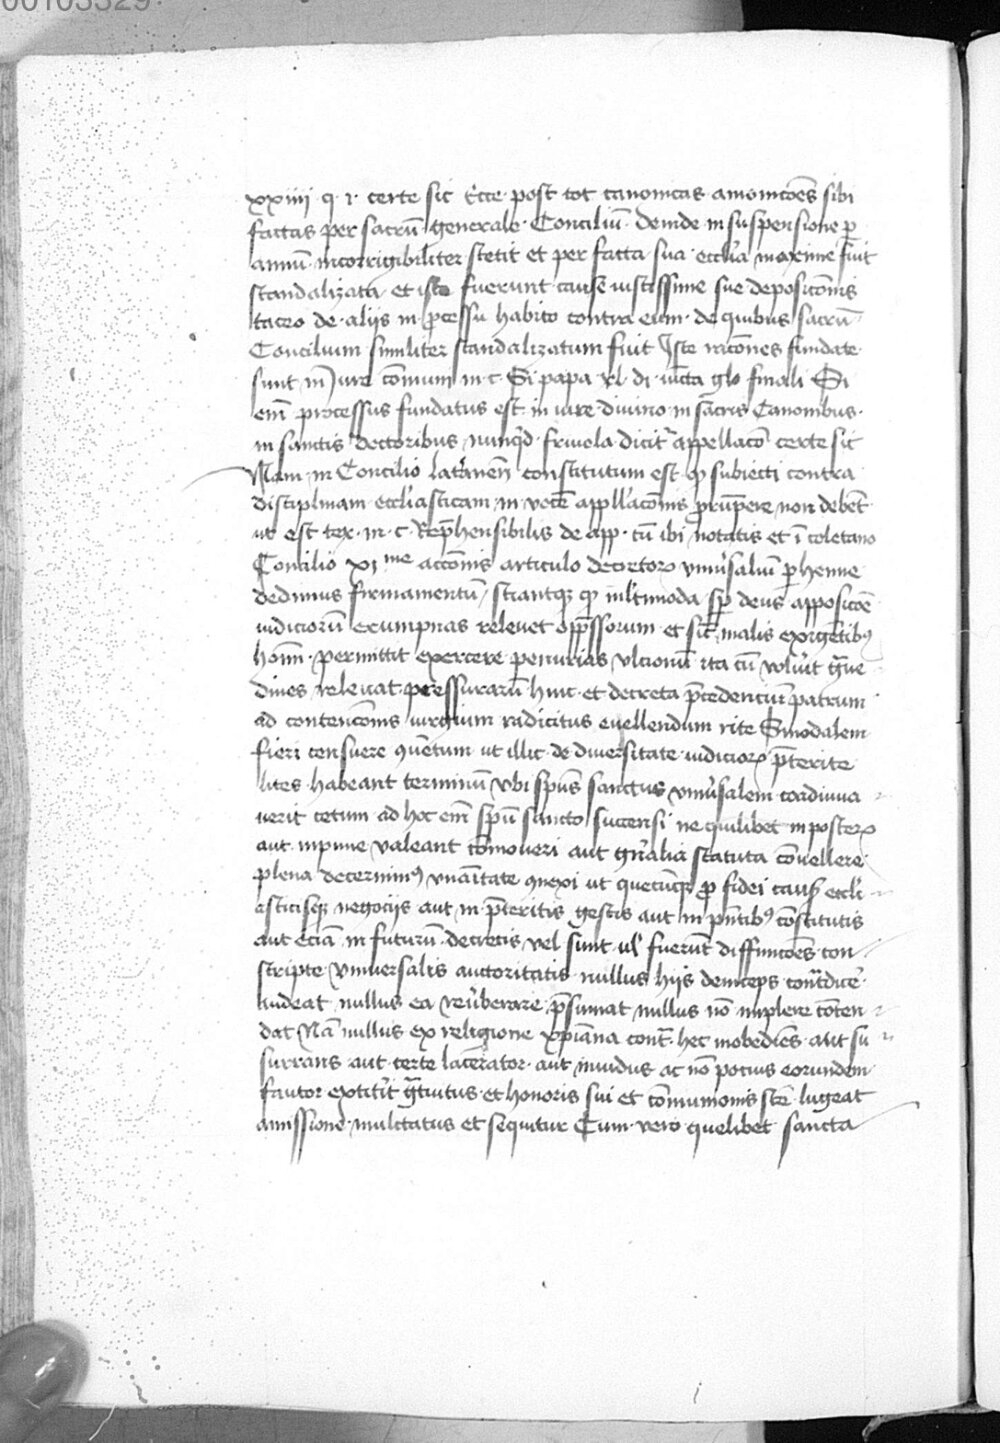 00103329
xxiiii q. i. certe sic Ecce post tot canonicas amonicōes sibi
factas per sacrū generale Conciliū deinde in suspensione p
annū incorrigibiliter stetit et per facta sua ecclīa maxime fuit
scandalizata et iste fuerunt cause iustissime sue deposicōnis
taceo de aliis in pcessu habito contra eum de quibus sacrū
Concilium similiter scandalizatum fuit Iste racōnes fundate
sunt in Iure cōmuni in c. Si papa xl di iūcta glo finali Si
enī processus fundatus est in iure divino in sacris Canonibus
in sanctis doctoribus nunqd frivola dicit appellacō certe sic
Nam in Concilio laterānen constitutum est q subiecti contra
disciplinam ecclīasticam in vocē appllacōnis prūpere non debēt
ut est tex. in c. Rephensibilis de app. cū ibi notatis et ī toletano
Concilio xi me accōnis articulo decretor unīusaliū p henne
dedimus firmamentū sciantque q inlīmoda sp deus apposicōē
iudiciorū erumpnas relevet oppssorum et sic malis exorgētib
hoīm permittit exercere penurias ulcionū ita cū volūit gve
dines relevat pressurarū hinc et decreta pcedenciū patrum
ad contencōnis iurgium radicitus evellendum rite Sinodalem
fieri censuere quētum ut illic de diversitate iudicior pterite
lites habeant terminū ubi spūs sanctus unīusalem coadiuva
verit cetum ad hoc enī spū sancto succensi ne quilibet in poster
aut inpune valeant cōmoveri aut gnālia statuta cōvellere
plena decernim unāitate qnexi ut quecūq p fidei causis eccli
asticisque negociis aut in pteritis gestis aut in pntib cōstitutis
aut eciā in futurū decretis vel sunt ul fuerūt diffinicōes con
scripte Universalis auctoritatis nullus hiis deinceps contdicē
audeat nullus ea revberare psumat nullus nō implere cōten
dat Nā nullus ex religione xpiana cont hec inobediēs aut su
surrans aut certe lacerator aut invidus ac nō pocius eorundem
fautor extitīt gtuitus et honoris sui et cōmunionis scē lugeat
amissione mulctatus et sequitur Cum vero quelibet sancta